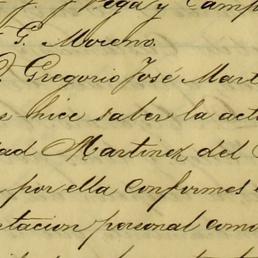 J. J. Vega y Camp
F. G. Moreno.
D. Gregorio José Mart
hice saber la act
dad Martinez del
por ella conformes
tacion personal como